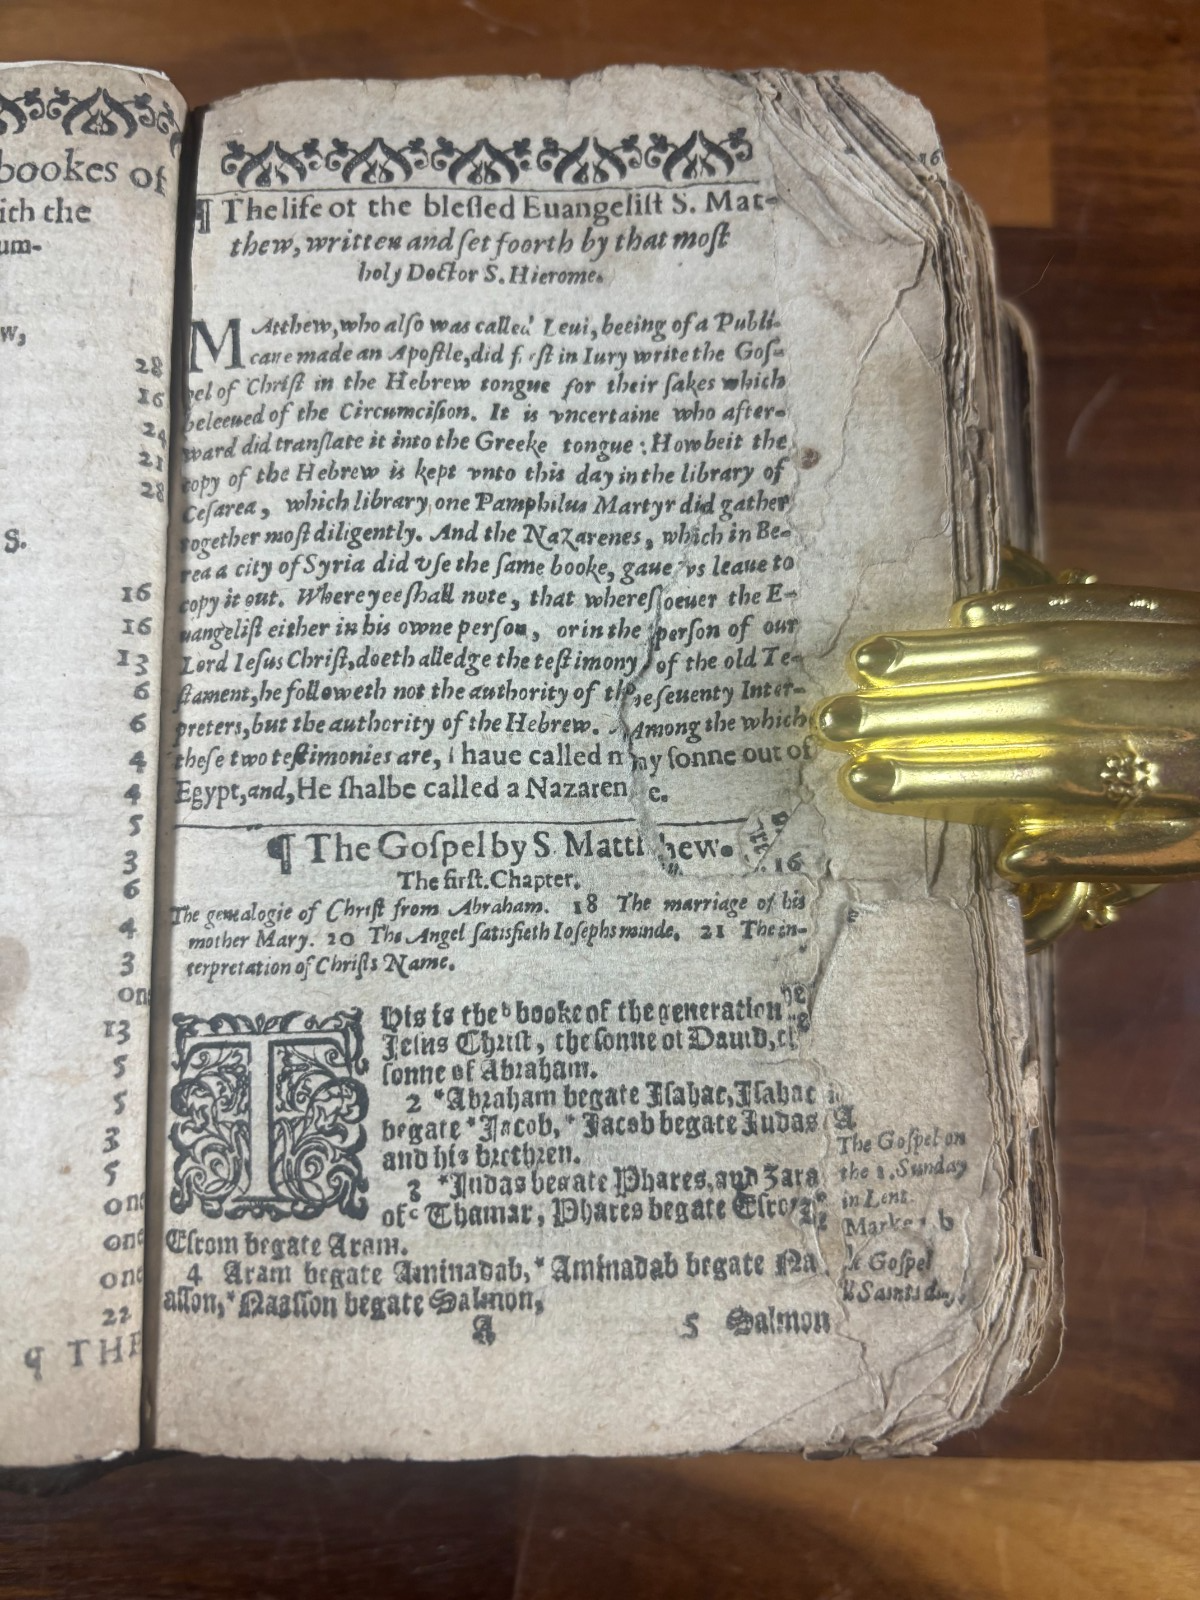 bookes of
ith the
um-
w,
28
16
24
21
28
S.
16
16
13
6
6
4
4
5
3
6
4
3
on
13
5
5
3
5
one
one
one
22
q THE
¶ The life of the blessed Euangelist S. Mat-
thew, written and set foorth by that most
holy Doctor S. Hierome.
MAtthew, who also was called Leui, beeing of a Publi-
cane made an Apostle, did first in Iury write the Gos-
pel of Christ in the Hebrew tongue for their sakes which
beleeued of the Circumcision. It is vncertaine who after-
ward did translate it into the Greeke tongue: Howbeit the
copy of the Hebrew is kept vnto this day in the library of
Cesarea, which library one Pamphilus Martyr did gather
together most diligently. And the Nazarenes, which in Be-
rea a city of Syria did vse the same booke, gaue vs leaue to
copy it out. Where yee shall note, that wheresoeuer the E-
uangelist either in his owne person, or in the person of our
Lord Iesus Christ, doeth alledge the testimony of the old Te-
stament, he followeth not the authority of the seuenty Inter-
preters, but the authority of the Hebrew. Among the which
these two testimonies are, I haue called my sonne out of
Egypt, and, He shalbe called a Nazarene.
¶ The Gospel by S. Matthew.
16
The first. Chapter.
The genealogie of Christ from Abraham. 18 The marriage of his
mother Mary. 20 The Angel satisfieth Iosephs minde. 21 The in-
terpretation of Christs Name.
THis is the b booke of the generation
Iesus Christ, the sonne of Dauid,
sonne of Abraham.
2 *Abraham begate Isahac, Isahac
begate *Jacob, *Jacob begate Judas
and his brethren.
3 *Judas begate Phares, and Zara
of c Thamar, Phares begate
Esrom begate Aram.
4 Aram begate Aminadab, *Aminadab begate Na
asson, *Naasson begate Salmon,
A 5 Salmon
A
The Gospel on
the 1. Sunday
in Lent.
b
Gospel
Saints day.